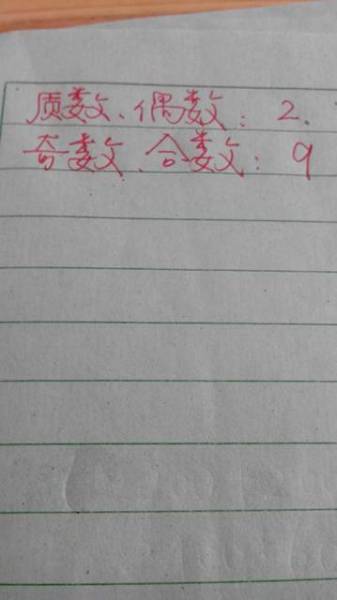 质数、偶数：2.
奇数、合数：9